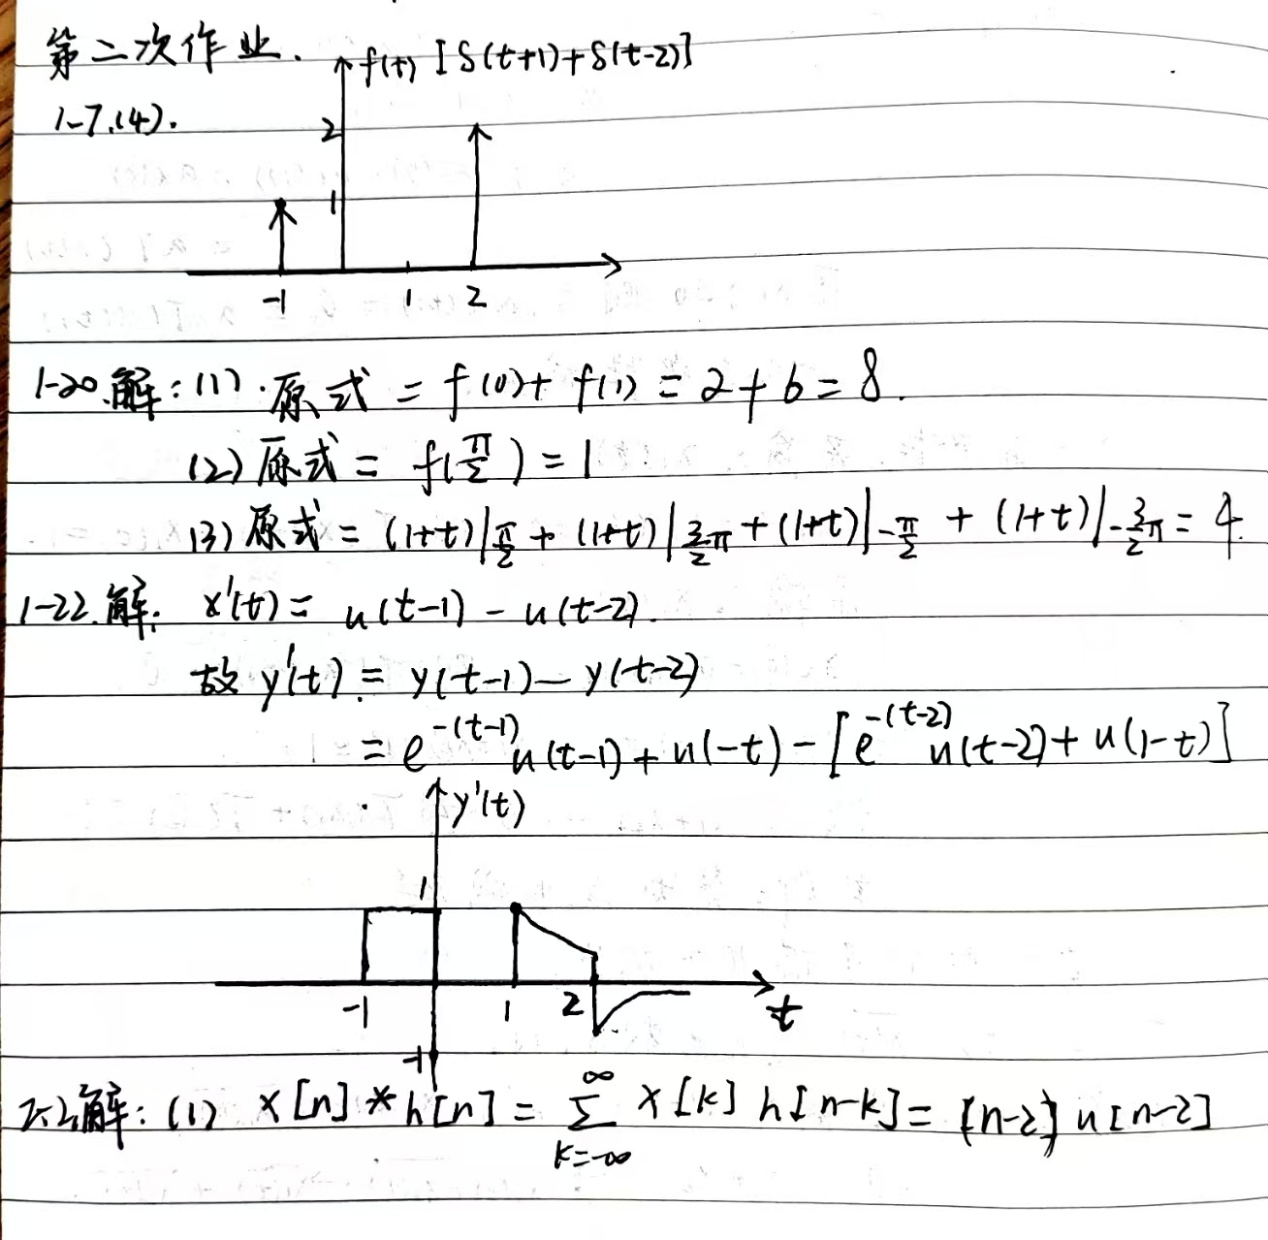 第二次作业.
f(t) [δ(t+1)+δ(t-2)]
1-7.(4).
2
1
-1 1 2
1-20.解:(1).原式 = f(0)+f(1) = 2+6=8.
(2)原式 = f(π/2) = 1
(3)原式 = (1+t)|π/2 + (1+t)|3/2π + (1+t)|-π/2 + (1+t)|-3/2π = 4.
1-22.解: x'(t) = u(t-1) - u(t-2).
故 y'(t) = y(t-1) - y(t-2)
= e^-(t-1) u(t-1) + u(-t) - [e^-(t-2) u(t-2) + u(1-t)]
y'(t)
1
-1 1 2 t
-1
解:(1) x[n] * h[n] = ∑ k=-∞ ∞ x[k] h[n-k] = [n-2] u[n-2]